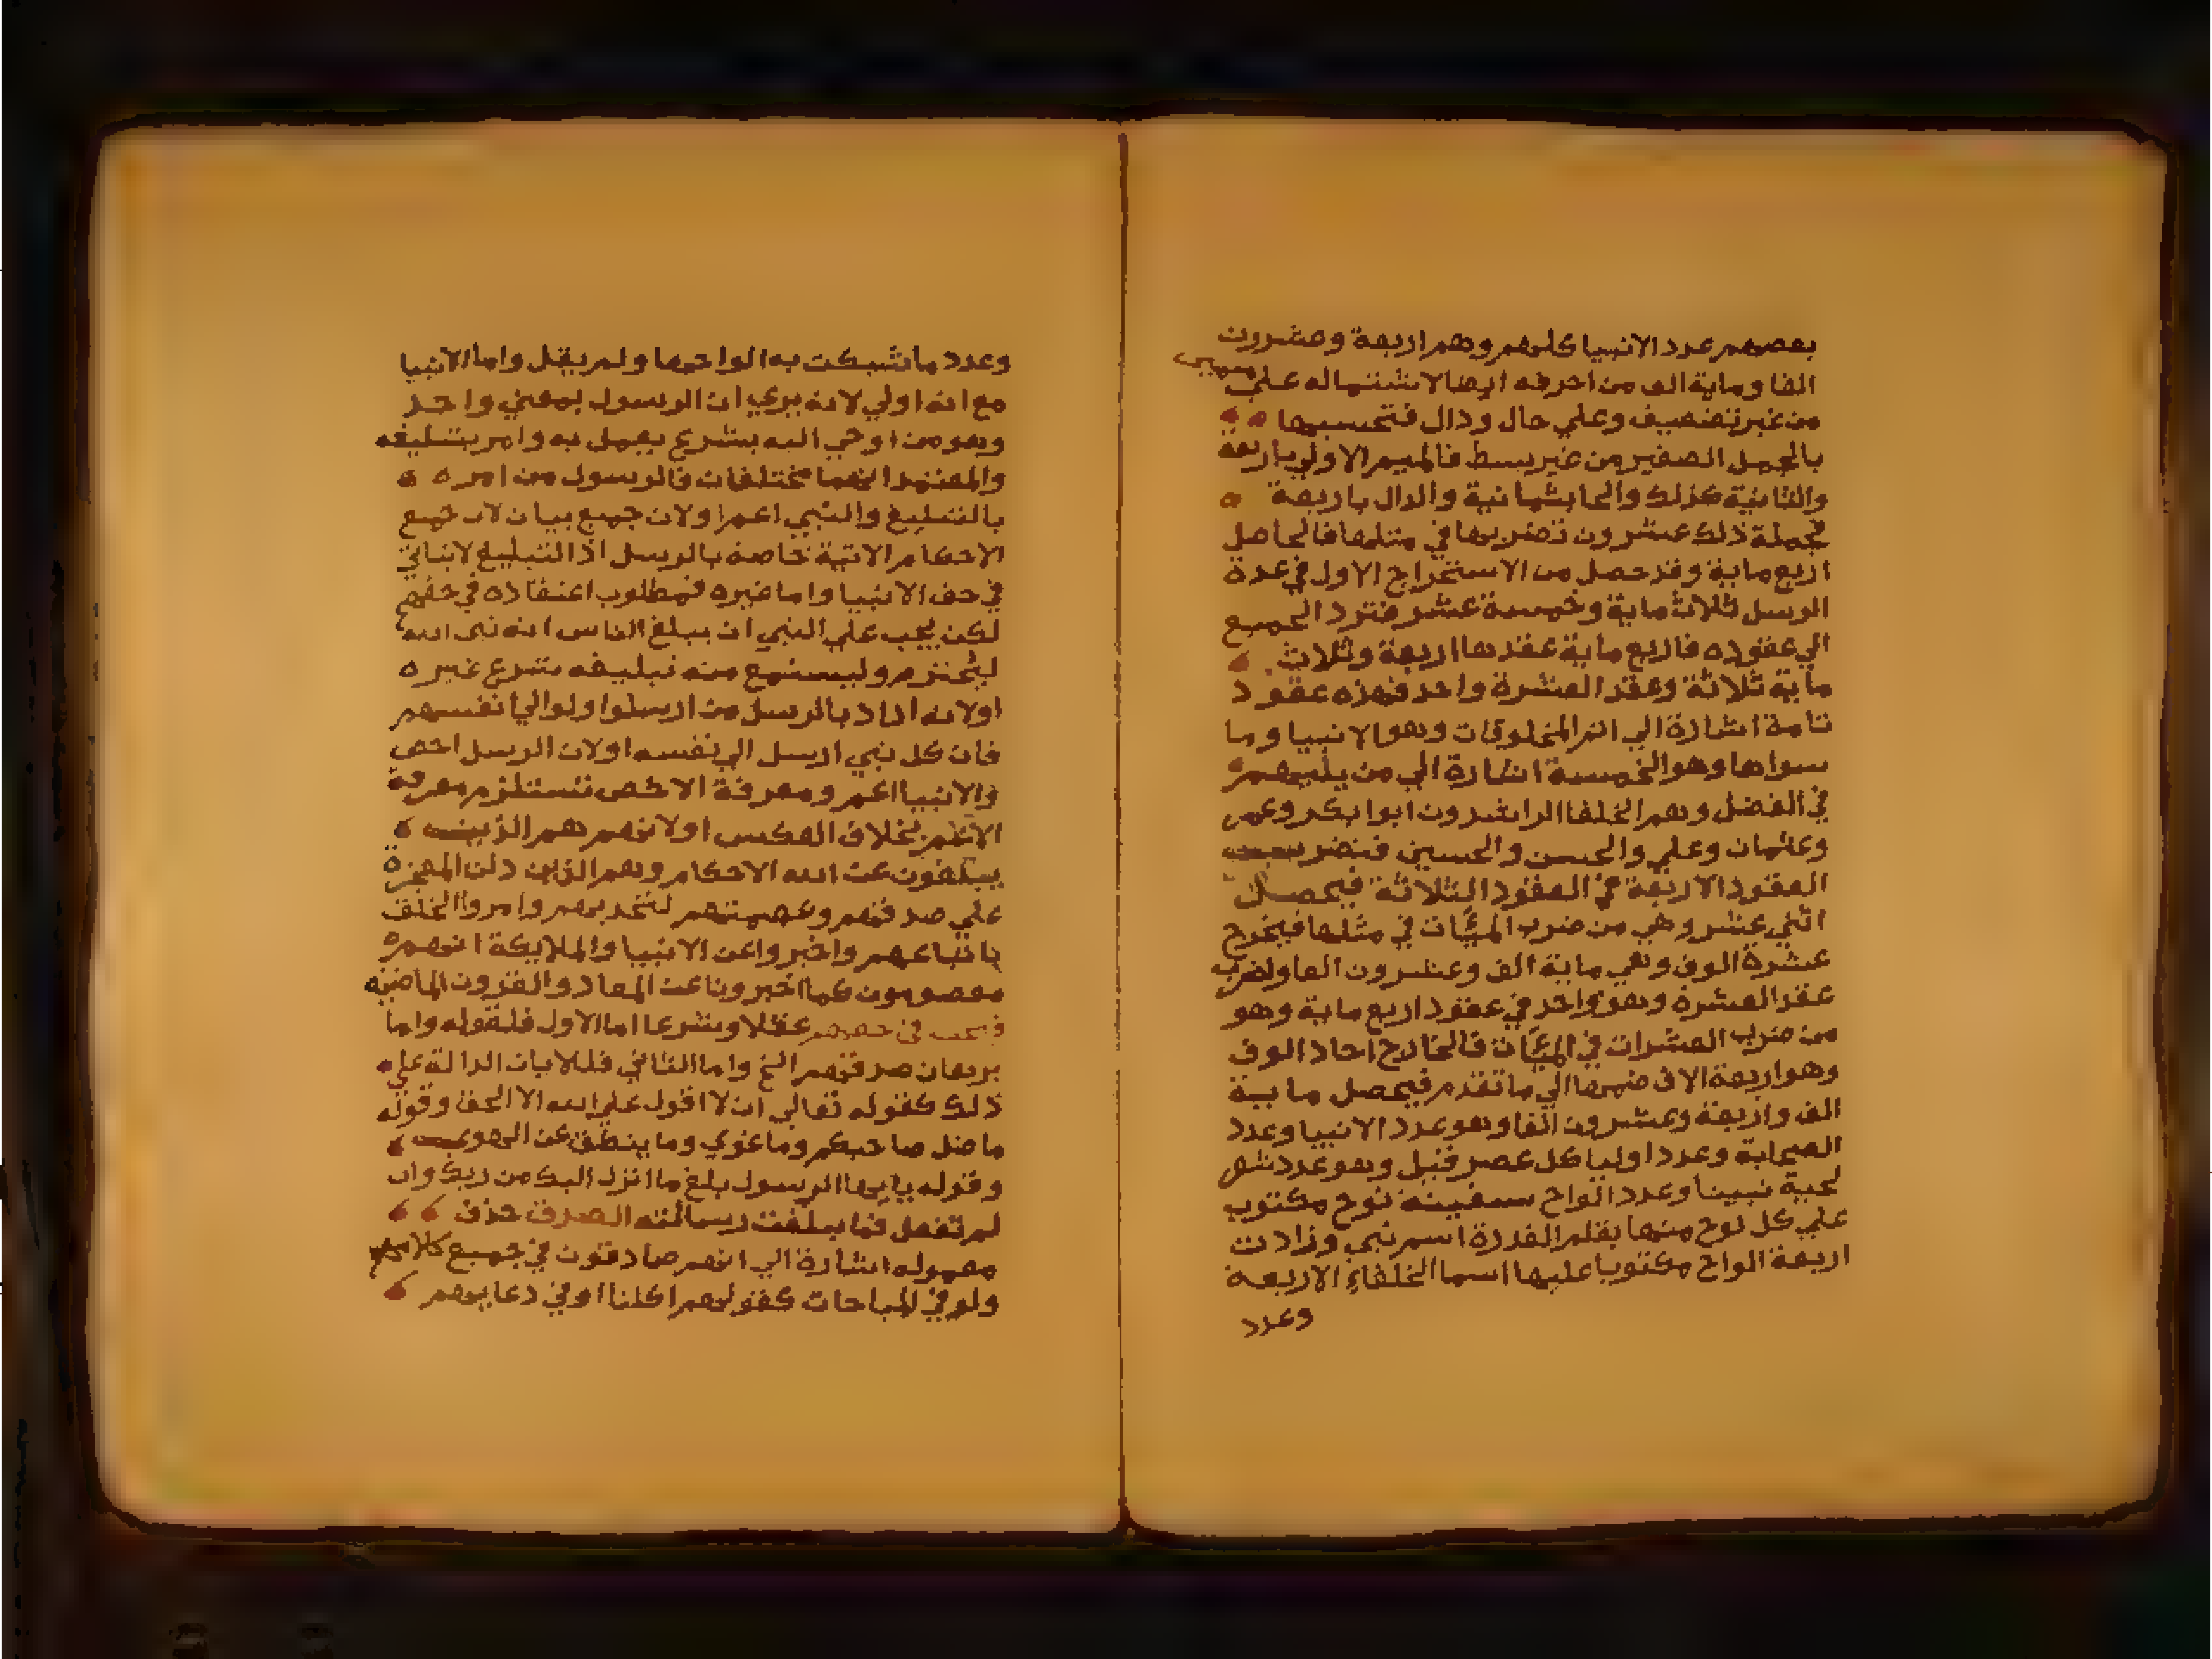 بعضهم عدد الانبيا كلهم وهم اربعة وعشرون
الفا وماية الف من احرفه ايضا لاشتماله علي ميمين
من غير تضعيف وعلي حال ودال فتحسبها
بالجمل الصغير من غير بسط فالميم الاولي باربعة
والثانية كذلك والحا بثمانية والدال باربعة
فجملة ذلك عشرون تضربها في مثلها فالحاصل
اربع ماية وقد حصل من الاستخراج الاول في عدة
الرسل ثلاث ماية وخمسة عشر فترد الجميع
الي عقوده فاربع ماية عقدها اربعة وثلاث
ماية ثلاثة وعقد العشرة واحد فهذه عقود
تامة اشارة الي اتم المخلوقات وهو الانبيا وما
سواها وهو الخمسة اشارة الي من يليهم
في الفضل وهم الخلفا الراشدون ابوا بكر وعمر
وعثمان وعلي والحسن والحسين فتضرب
العقود الاربعة في العقود الثلاثة فيحصل
اثني عشر وهي من ضرب الميات في مثلها فيخرج
عشرة الوف وهي ماية الف وعشرون الفا واضرب
عقد العشرة وهو واحد في عقود اربع ماية وهو
من ضرب العشرات في الميات فالخارج احاد الوف
وهو اربعة الاف ضمها الي ما تقدم فيحصل ماية
الف واربعة وعشرون الفا وهو عدد الانبيا وعدد
الصحابة وعدد اوليا كل عصر قيل وهو عدد شعر
لحية نبينا وعدد الواح سفينة نوح مكتوب
علي كل لوح منها بقلم القدرة اسم نبي وزادت
اربعة الواح مكتوبا عليها اسما الخلفاء الاربعة
وعدد
وعدد ما شبكت به الواحها ولم يقل واما الانبيا
مع انه اولي لانه يري ان الرسول بمعني واحد
وهو من اوحي اليه بشرع يعمل به وامر بتبليغه
والمعتمد انهما مختلفان فالرسول من امره
بالتبليغ والنبي اعم اولان جميع بيان لان جميع
الاحكام الاتية خاصة بالرسل اذ التبليغ لا ياتي
في حق الانبيا واما غيره فمطلوب اعتقاده في حقهم
لكن يجب علي النبي ان يبلغ الناس انه نبي الله
ليحترم وليستمع منه تبليغه شرع غيره
اولانه اراد بالرسل من ارسلوا ولو الي انفسهم
فان كل نبي ارسل الي نفسه اولان الرسل اخص
والانبيا اعم ومعرفة الاخص تستلزم معرفة
الاعم بخلاف العكس اولانهم هم الذين
يبلغون عن الله الاحكام وهم الذين دلت المعجزة
علي صدقهم وعصمتهم لتحديهم وامروا الخلق
باتباعهم واخبروا عن الانبيا والملايكة انهم
معصومون كما اخبرونا عن المعاد والقرون الماضية
فيجب في حقهم عقلا وشرعا اما الاول فلقوله واما
برهان صدقهم الخ واما الثاني فللايات الدالة علي
ذلك كقوله تعالي ان لا اقول علي الله الا الحق وقوله
ما ضل صاحبكم وما غوي وما ينطق عن الهوي
وقوله يايها الرسول بلغ ما انزل اليك من ربك وان
لم تفعل فما بلغت رسالته الصدق حذف
معموله اشارة الي انهم صادقون في جميع كلامهم
ولو في المباحات كقولهم اكلنا او في دعايهم